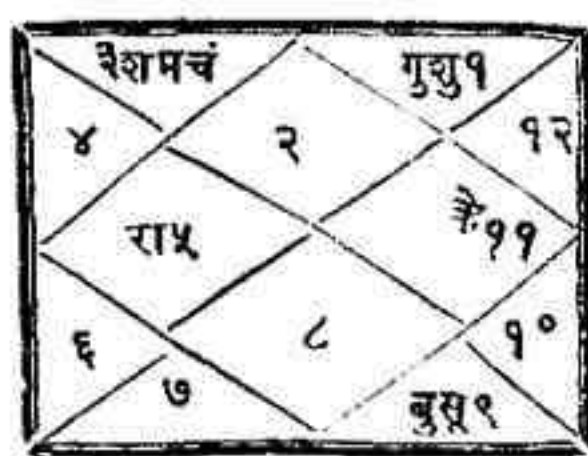 ३शमचं
गुशु१
४
२
१२
रा५
के११
६
८
१०
७
बुसू९